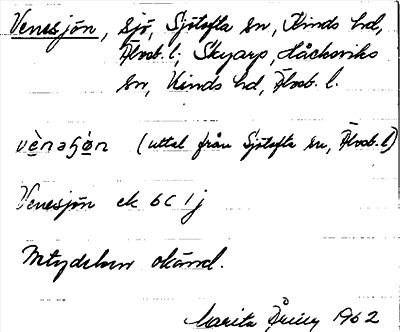 Venesjön, sjö, Sjötofta sn, Kinds hd,
Älvsb. l; Skyarp, Håcksviks
sn, Kinds hd, Älvsb. l.
vènəʂø̀n (uttal från Sjötofta sn, Älvsb. l)
Venesjön ek 6 C 1 j
Betydelsen okänd.
Marita 1962